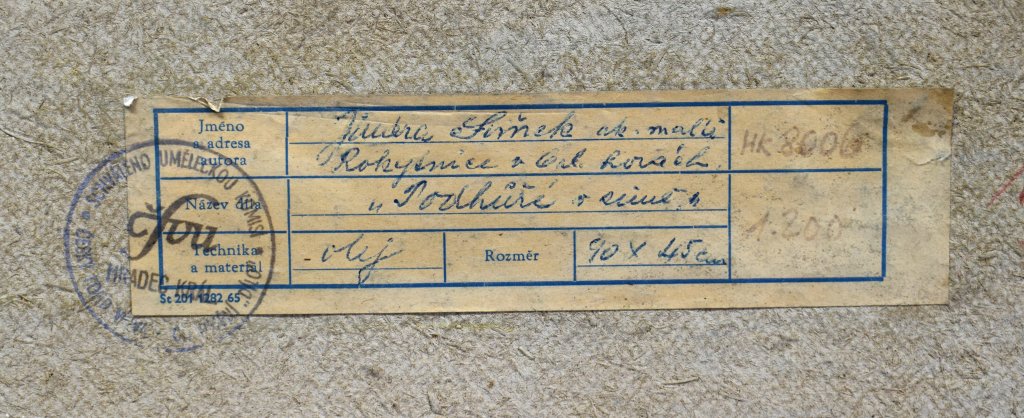 Jméno
a adresa
autora
Jindra Šimek ak. malíř
Rokytnice v Orl. horách
Název díla
„Podhůří v zimě"
Technika
a materiál
olej
Rozměr
90 X 45 cm
HK 8006
1.200
St 201 1282 65
UMĚLECKOU
ČFVU
HRADEC KRÁL.